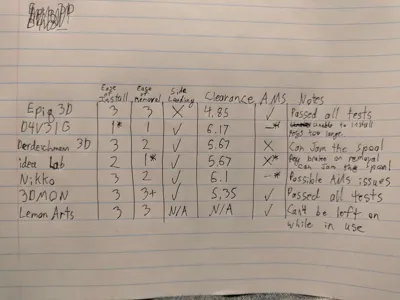 Ease of Install Ease of Removal Side Loading Clearance AMS Notes
Epig 3D 3 3 X 4,85 ✓ Passed all tests
D4V31G 1* 1 ✓ 6.17 —* unable to install
keys too large.
Derdeschman 3D 3 2 ✓ 5,67 X Can Jam the spool
idea Lab 2 1* ✓ 5,67 X* Peg broke on removal
can Jam the spool
Nikko 3 2 ✓ 6.1 —* Possible AMS issues
3DMON 3 3+ ✓ 5,35 ✓ Passed all tests
Lemon Arts 3 3 N/A N/A ✓ Can't be left on
while in use